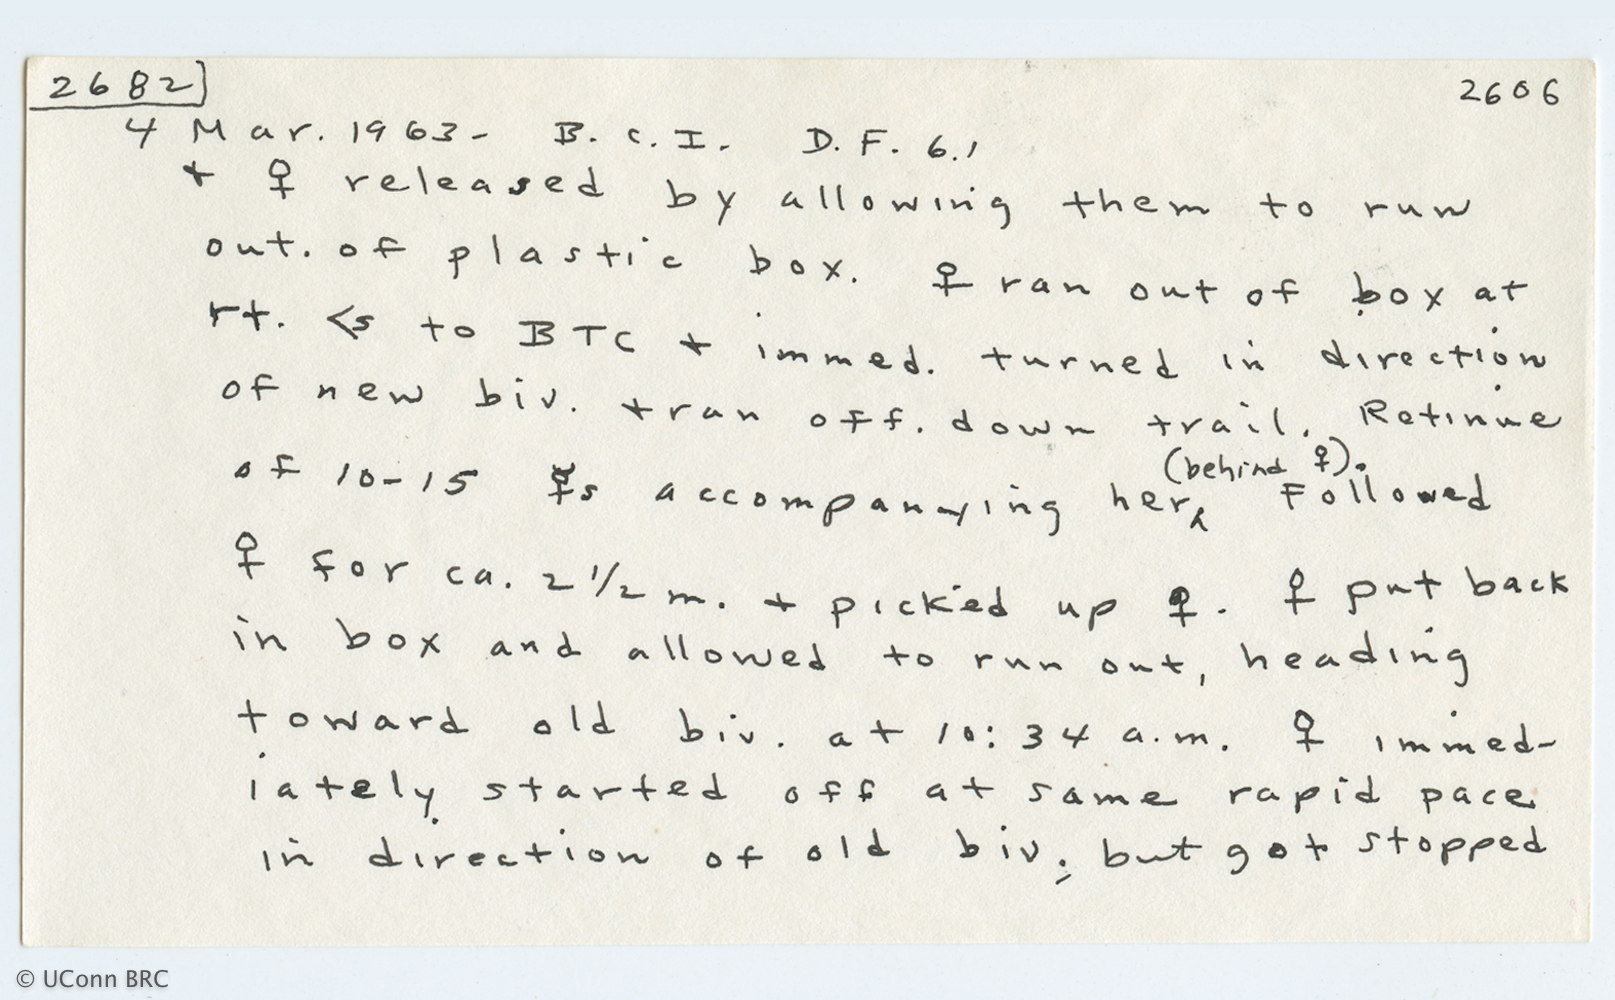 2682]
2606
4 Mar. 1963- B.C.I. D.F. 6.1
+ ♀ released by allowing them to run
out. of plastic box. ♀ ran out of box at
rt. <s to BTC + immed. turned in direction
of new biv. + ran off. down trail. Retinue
of 10-15 ☿s accompanying her (behind ♀). Followed
♀ for ca. 2 1/2 m. + picked up ♀. ♀ put back
in box and allowed to run out, heading
toward old biv. at 10:34 a.m. ♀ immed-
iately started off at same rapid pace
in direction of old biv; but got stopped
© UConn BRC